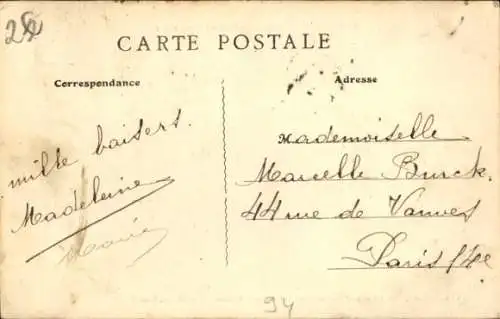 CARTE POSTALE
Correspondance
mille baisers.
Madeleine
Marie
Adresse
Mademoiselle
Marcelle Burck.
44 rue de Vanves
Paris 14e
94